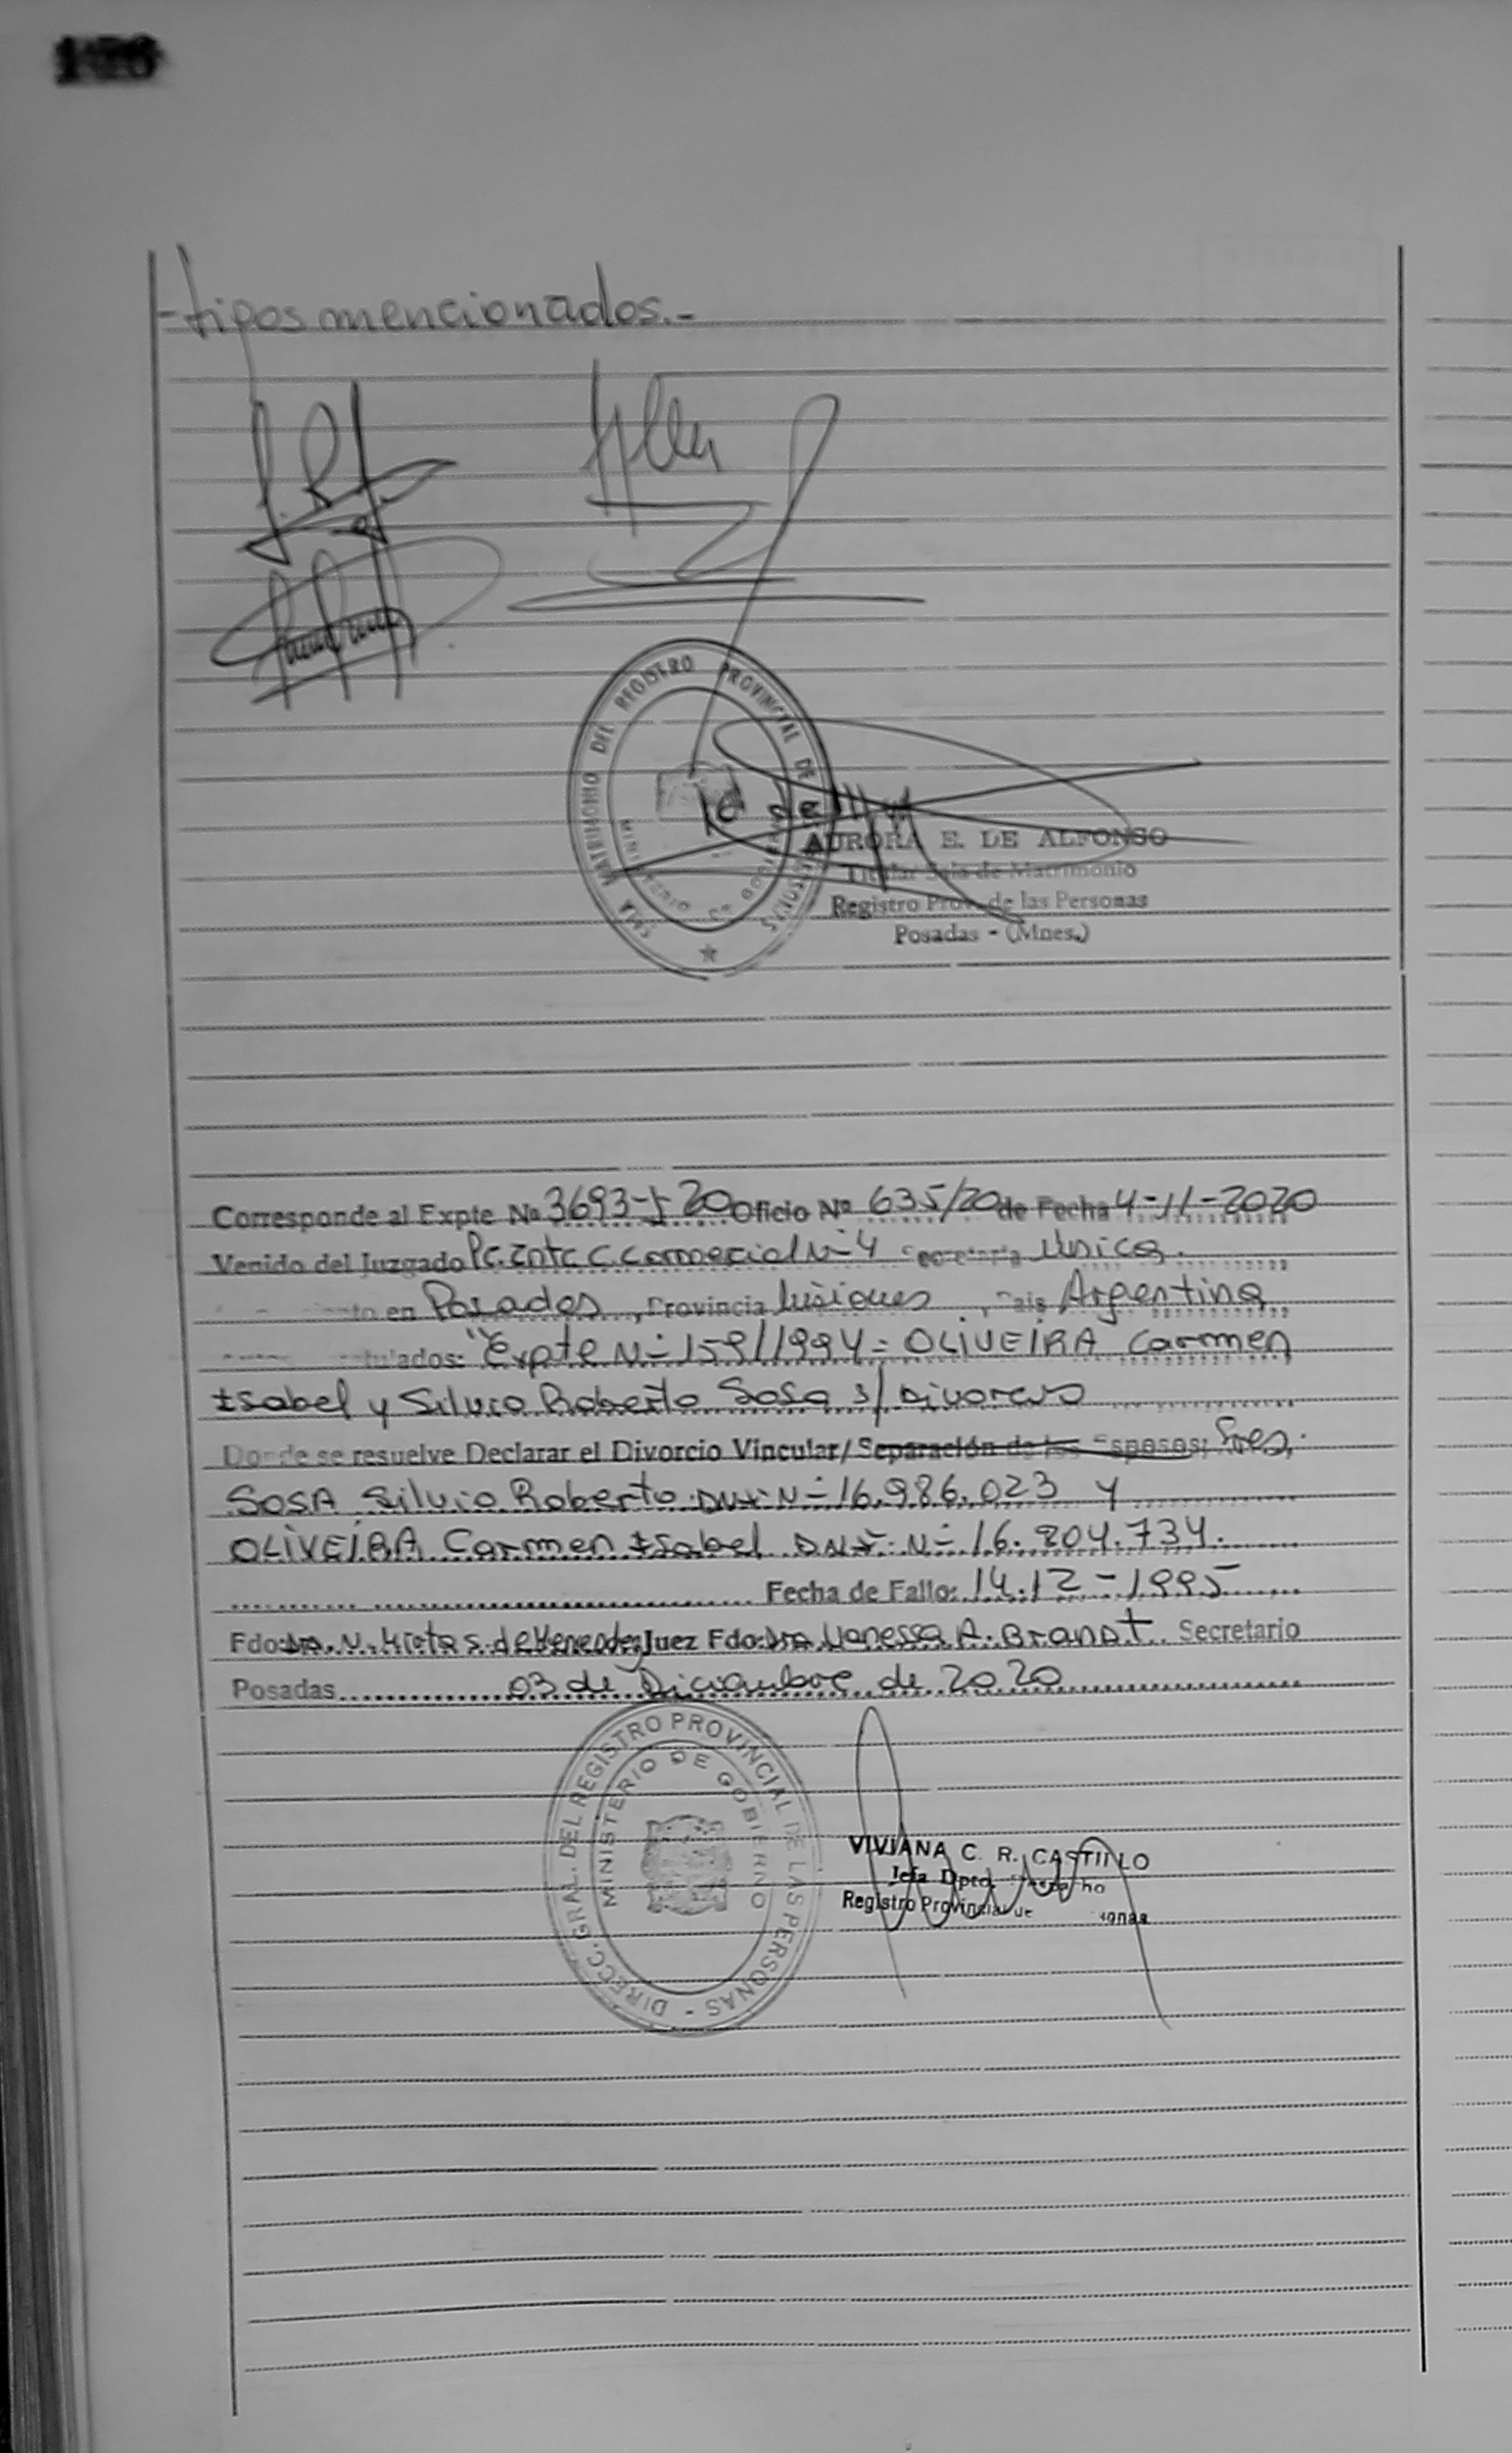 -tipos mencionados.-
SALA MATRIMONIO DEL REGISTRO PROVINCIAL DE
MINISTERIO DE GOBIERNO
AURORA E. DE ALFONSO
Titular Sala de Matrimonio
Registro Prov. de las Personas
Posadas - (Mnes.)
Corresponde al Expte Nº 3693-J-20 Oficio Nº 635/20 de Fecha 4-11-2020
Venido del Juzgado C. Comercial Nº 4 Secretaría Unica.
en Posadas, Provincia Misiones, País Argentina
"Expte Nº 159/1994 = OLIVEIRA Carmen
Isabel y Silvio Roberto Sosa s/ Divorcio
Donde se resuelve Declarar el Divorcio Vincular/ Separación de los Esposos: Sres.
SOSA Silvio Roberto DNI. Nº 16.986.023 y
OLIVEIRA Carmen Isabel DNI. Nº 16.804.734.
Fecha de Fallo: 14.12-1995
Fdo: Dra. Juez Fdo: Dra Vanessa A. Brandt Secretario
Posadas 03 de Diciembre de 2020
DIRECC. GRAL. DEL REGISTRO PROVINCIAL DE LAS PERSONAS -
MINISTERIO DE GOBIERNO
VIVIANA C. R. CASTILLO
Jefa Dpto.
Registro Provincial de